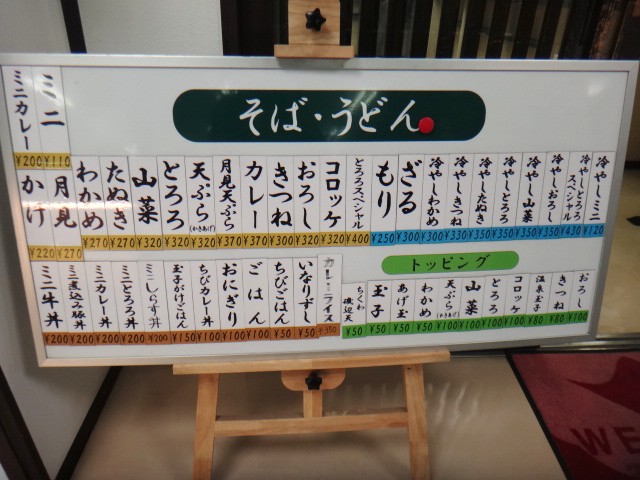 そば・うどん
ミニカレー ¥200
ミニ ¥110
かけ ¥220
月見 ¥270
わかめ ¥270
たぬき ¥270
山菜 ¥320
とろろ ¥320
天ぷら(かきあげ) ¥320
月見天ぷら ¥370
カレー ¥370
きつね ¥300
おろし ¥320
コロッケ ¥320
とろろスペシャル ¥400
もり ¥250
ざる ¥300
冷やしわかめ ¥300
冷やしきつね ¥330
冷やしたぬき ¥350
冷やしとろろ ¥350
冷やし山菜 ¥350
冷やしおろし ¥350
冷やしとろろスペシャル ¥430
冷やしミニ ¥120
ミニ牛丼 ¥200
ミニ煮込み豚丼 ¥200
ミニカレー丼 ¥200
ミニとろろ丼 ¥200
ミニしらす丼 ¥200
玉子かけごはん ¥150
ちびカレー丼 ¥100
おにぎり ¥100
ごはん ¥100
ちびごはん ¥50
いなりずし ¥50
カレーライス ¥350
トッピング
ちくわ磯辺天 ¥50
玉子 ¥50
あげ玉 ¥50
わかめ ¥50
天ぷら(かきあげ) ¥100
山菜 ¥100
とろろ ¥100
コロッケ ¥100
温泉玉子 ¥80
きつね ¥80
おろし ¥100
WE